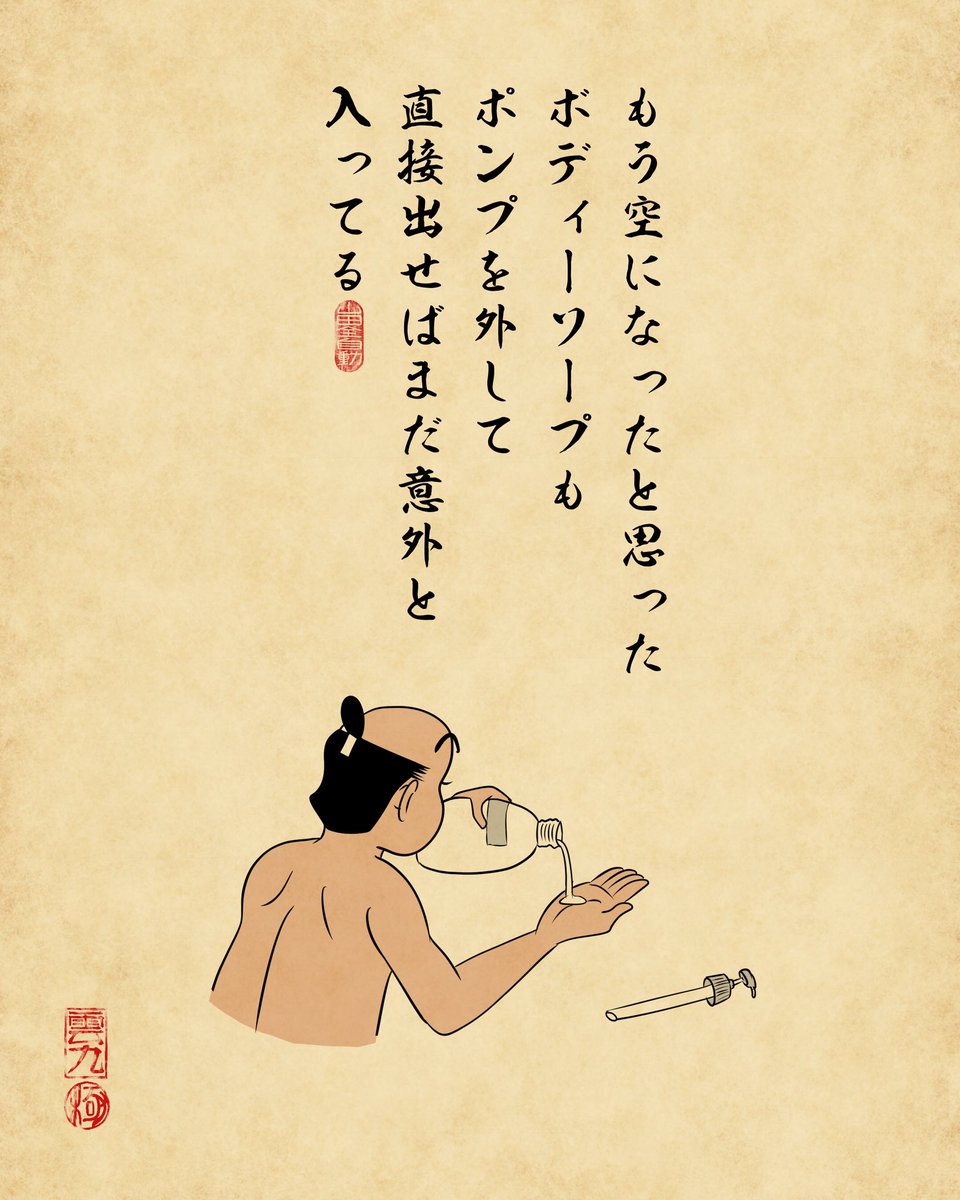 もう空になったと思った
ボディーソープも
ポンプを外して
直接出せばまだ意外と
入ってる